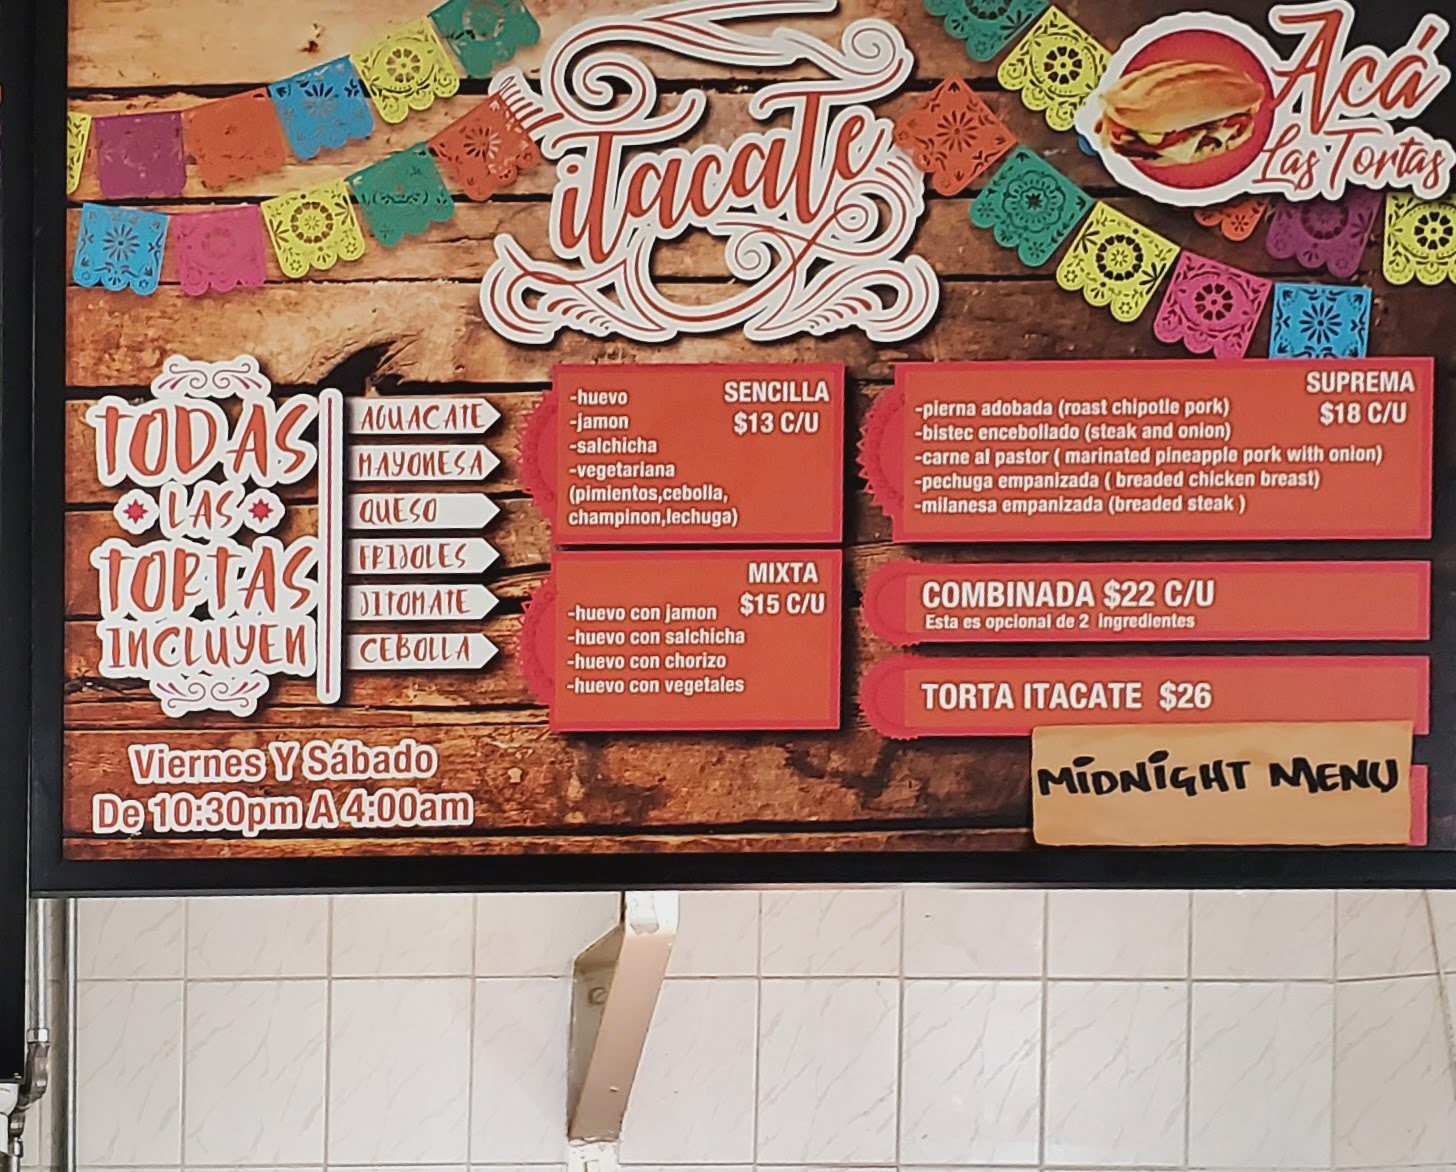 itacate
Acá
Las Tortas
TODAS
LAS
TORTAS
INCLUYEN
AGUACATE
MAYONESA
QUESO
FRIJOLES
JITOMATE
CEBOLLA
Viernes Y Sábado
De 10:30pm A 4:00am
SENCILLA
$13 C/U
-huevo
-jamon
-salchicha
-vegetariana
(pimientos,cebolla,
champinon,lechuga)
MIXTA
$15 C/U
-huevo con jamon
-huevo con salchicha
-huevo con chorizo
-huevo con vegetales
SUPREMA
$18 C/U
-pierna adobada (roast chipotle pork)
-bistec encebollado (steak and onion)
-carne al pastor ( marinated pineapple pork with onion)
-pechuga empanizada ( breaded chicken breast)
-milanesa empanizada (breaded steak )
COMBINADA $22 C/U
Esta es opcional de 2 ingredientes
TORTA ITACATE $26
MIDNIGHT MENU